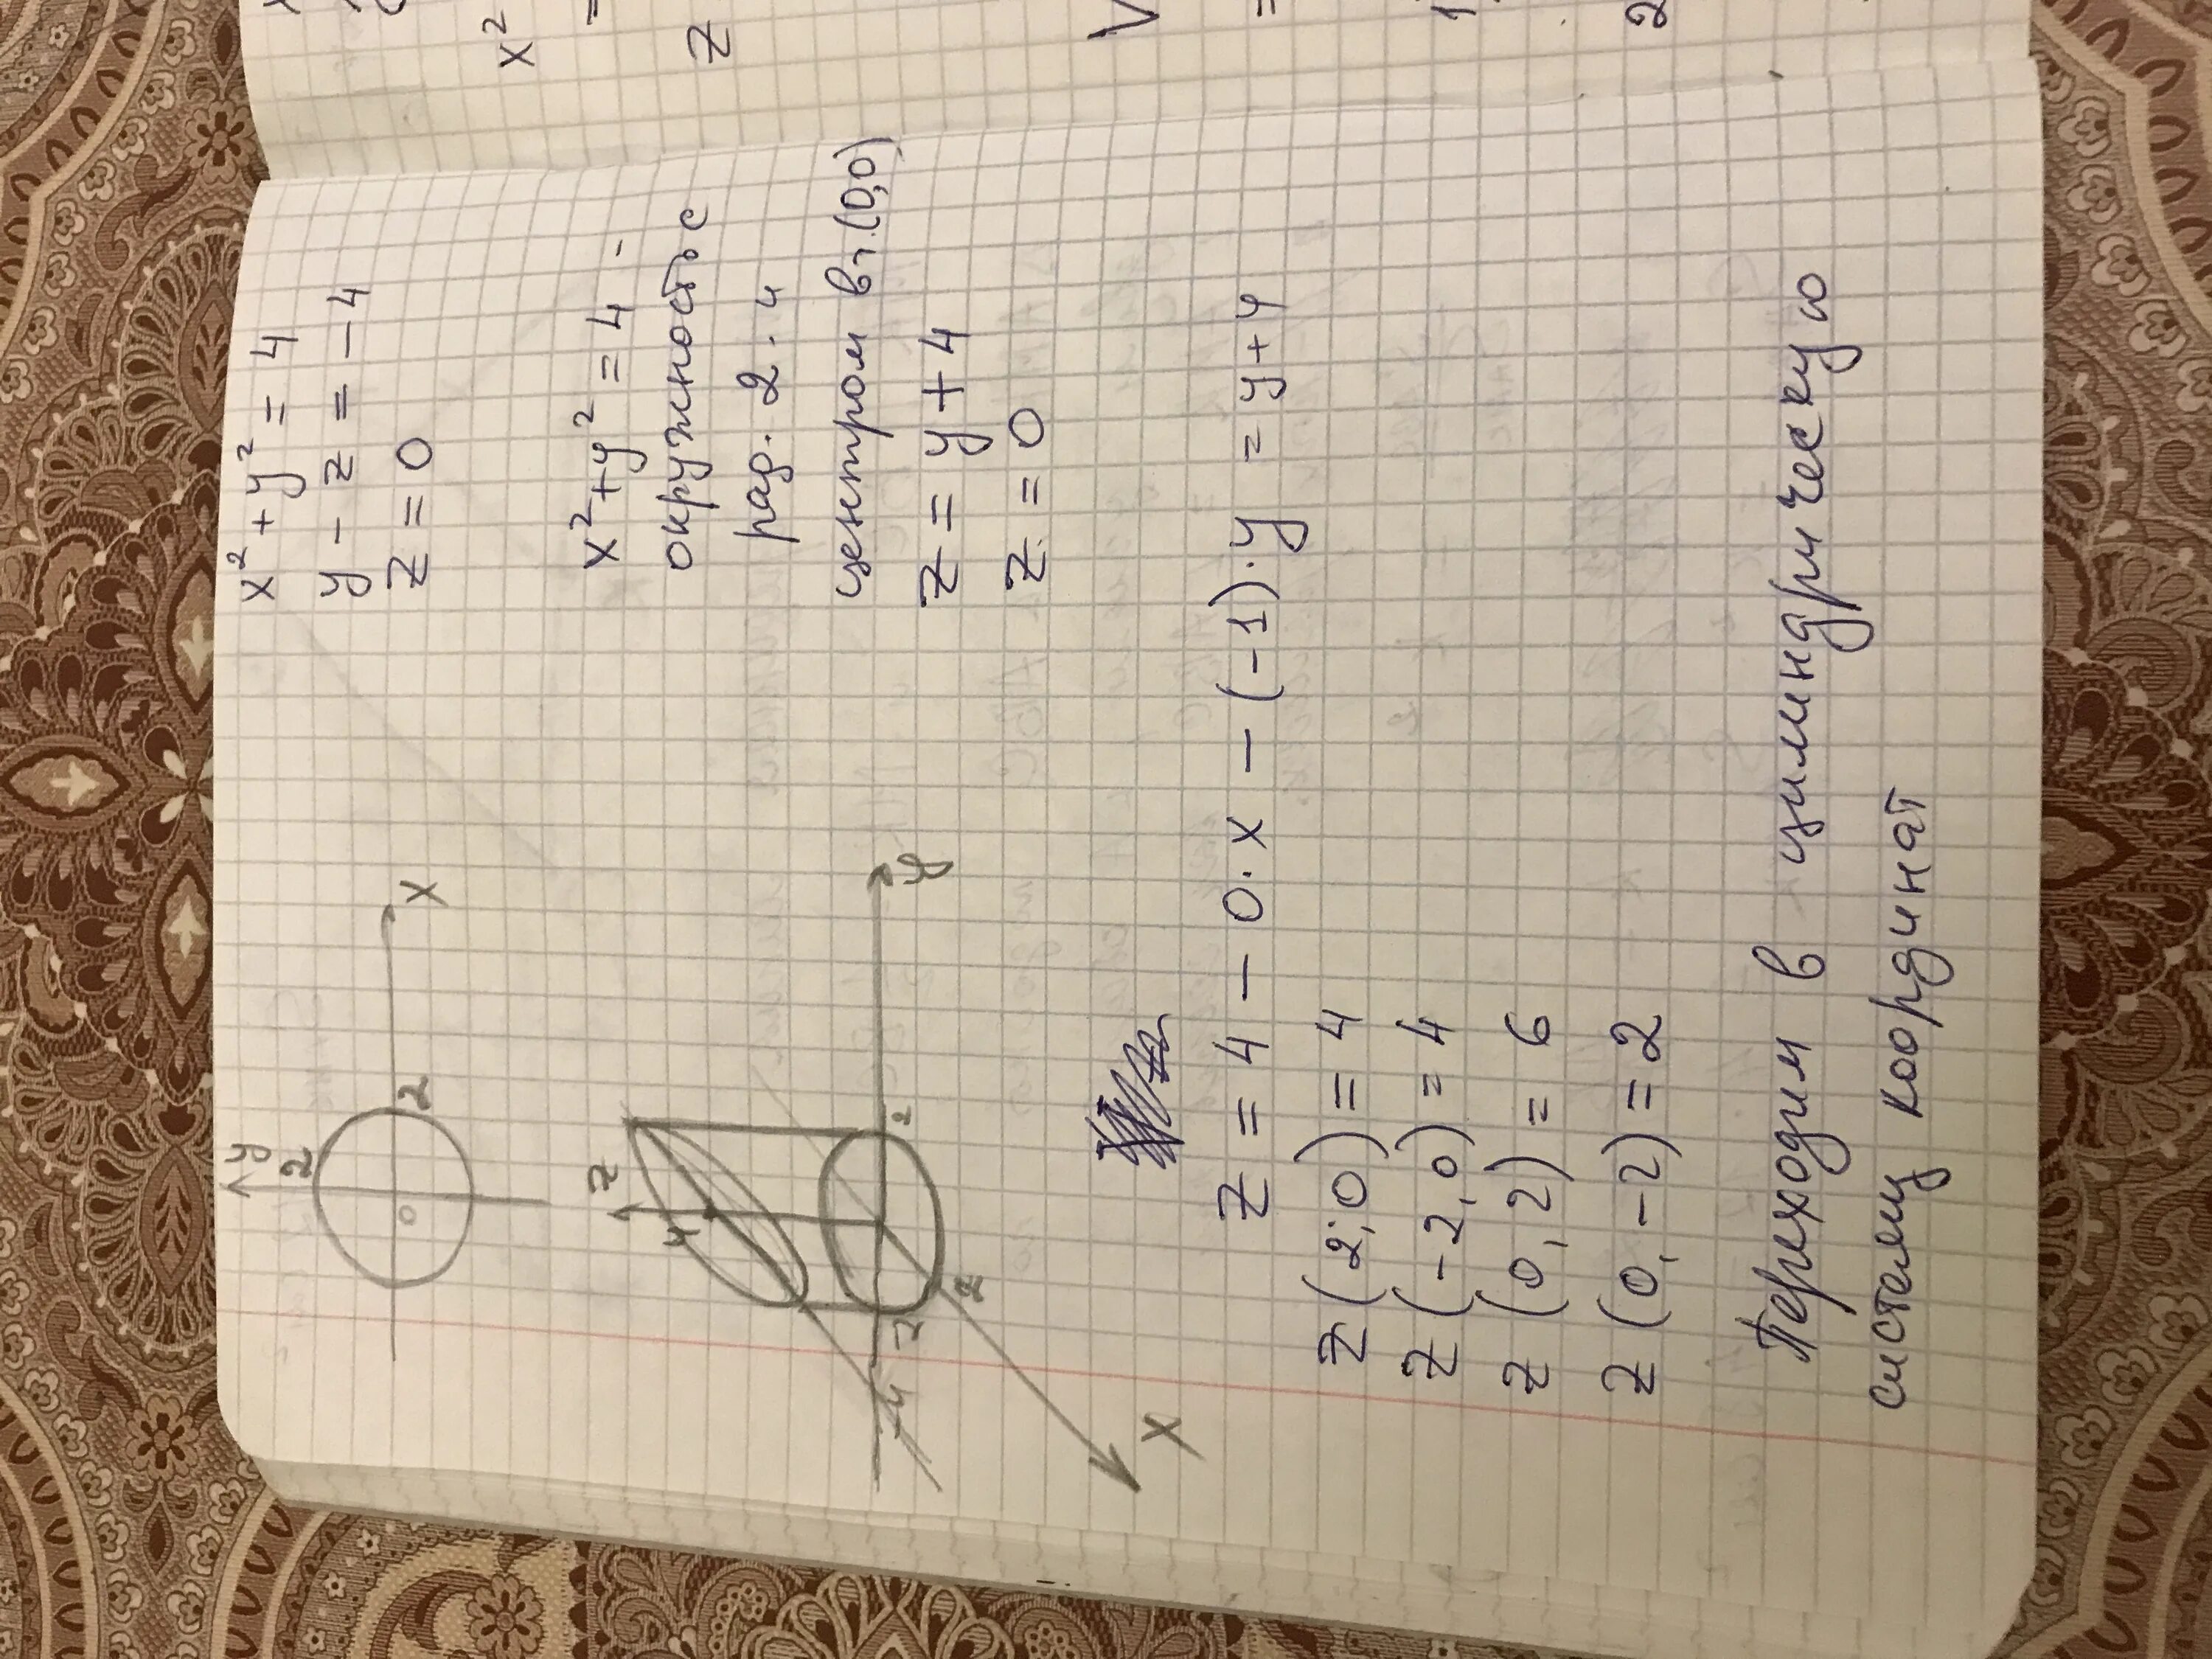 x² + y² = 4
y - z = -4
z = 0
y
2
0
2
x
x² + y² = 4 -
окружность с
рад. 2. и
центром в т. (0,0)
z = y + 4
z = 0
z
4
y
2
2
4
x
z = 4 - 0·x - (-1)·y = y + 4
z(2;0) = 4
z(-2,0) = 4
z(0,2) = 6
z(0,-2) = 2
Переходим в цилиндрическую
систему координат
x²
=
z
V
=
1
2